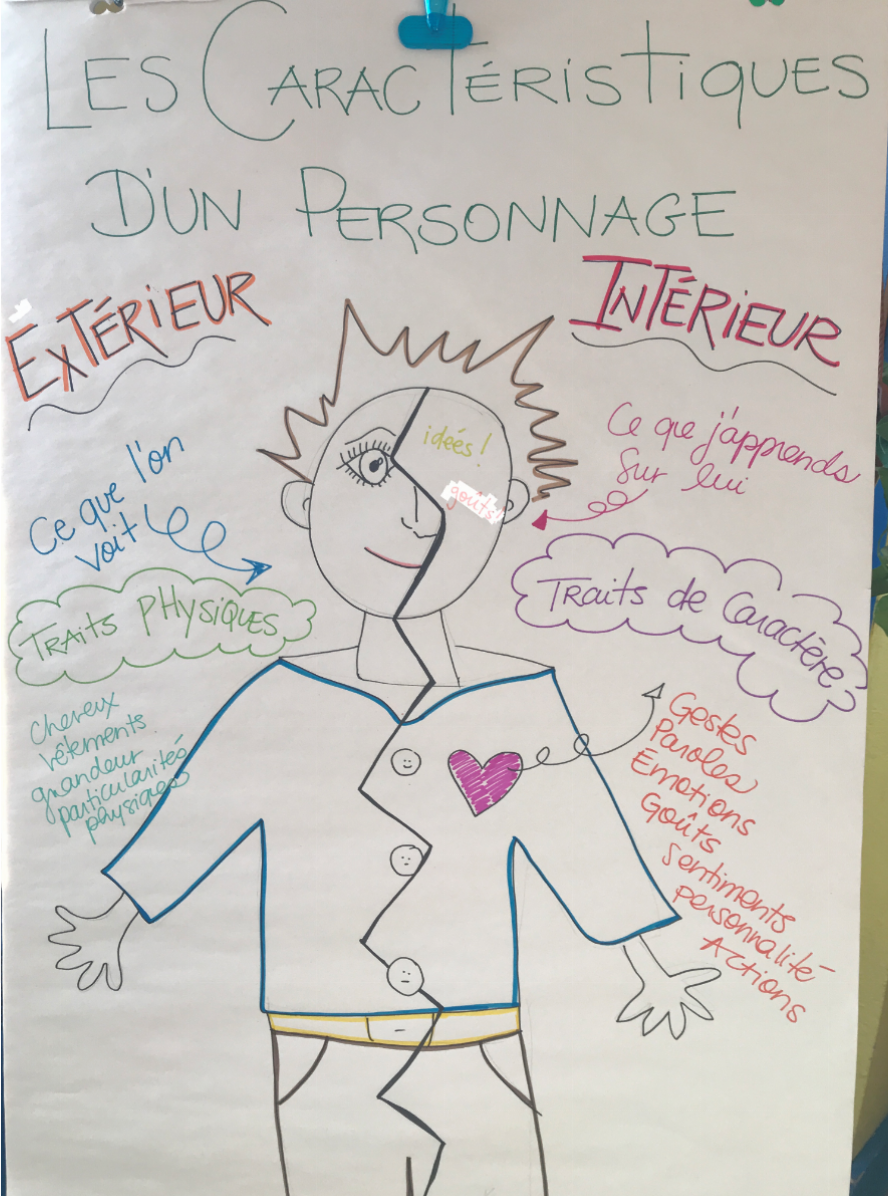 LES CARACTÉRISTIQUES
D'UN PERSONNAGE
EXTÉRIEUR
Ce que l'on
voit
TRAITS PHYSIQUES
Cheveux
vêtements
grandeur
particularités
physiques
idées!
goûts!
INTÉRIEUR
Ce que j'apprends
sur lui
TRAITS de Caractère
Gestes
Paroles
Émotions
Goûts
sentiments
personnalité
Actions